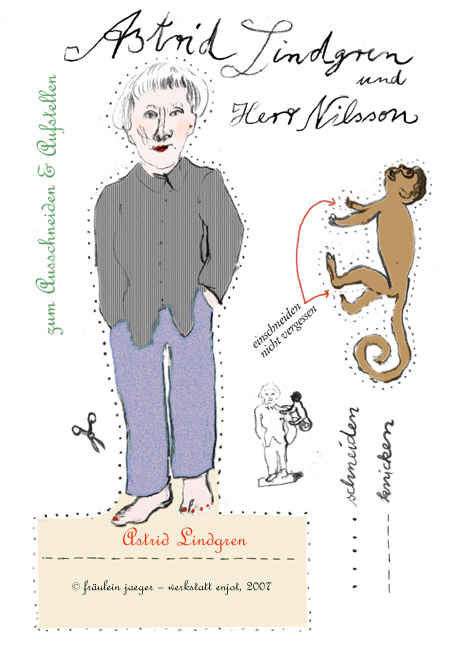 Astrid Lindgren
und
Herr Nilsson
zum Ausschneiden & Aufstellen
einschneiden
nicht vergessen
schneiden
knicken
Astrid Lindgren
© fräulein jaeger – werkstatt enjot, 2007